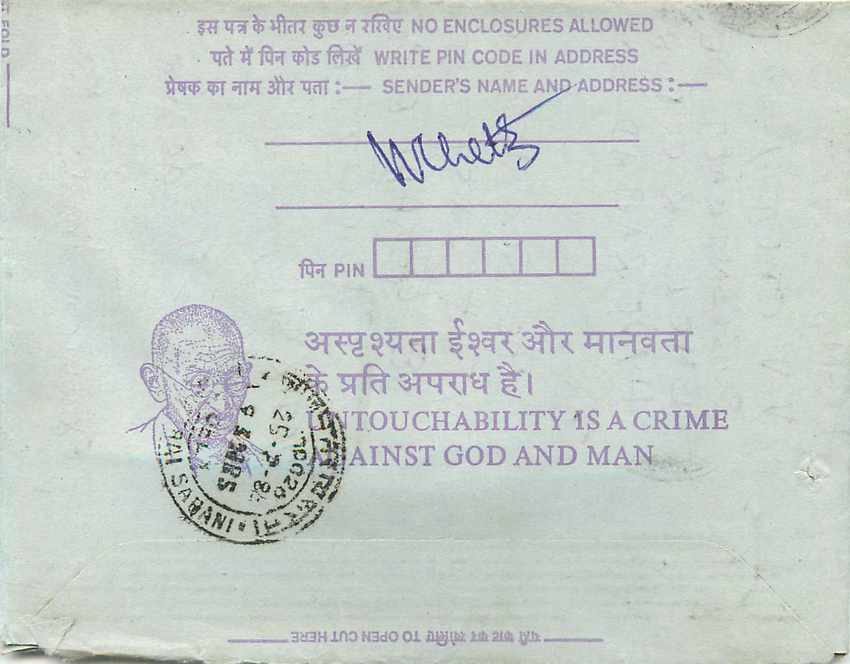 इस पत्र के भीतर कुछ न रखिए NO ENCLOSURES ALLOWED
पते में पिन कोड लिखें WRITE PIN CODE IN ADDRESS
प्रेषक का नाम और पता :— SENDER'S NAME AND ADDRESS :—
पिन PIN
अस्पृश्यता ईश्वर और मानवता
के प्रति अपराध है।
UNTOUCHABILITY IS A CRIME
AGAINST GOD AND MAN
SARANI
यहां काट कर खोलिए TO OPEN CUT HERE
FOLD